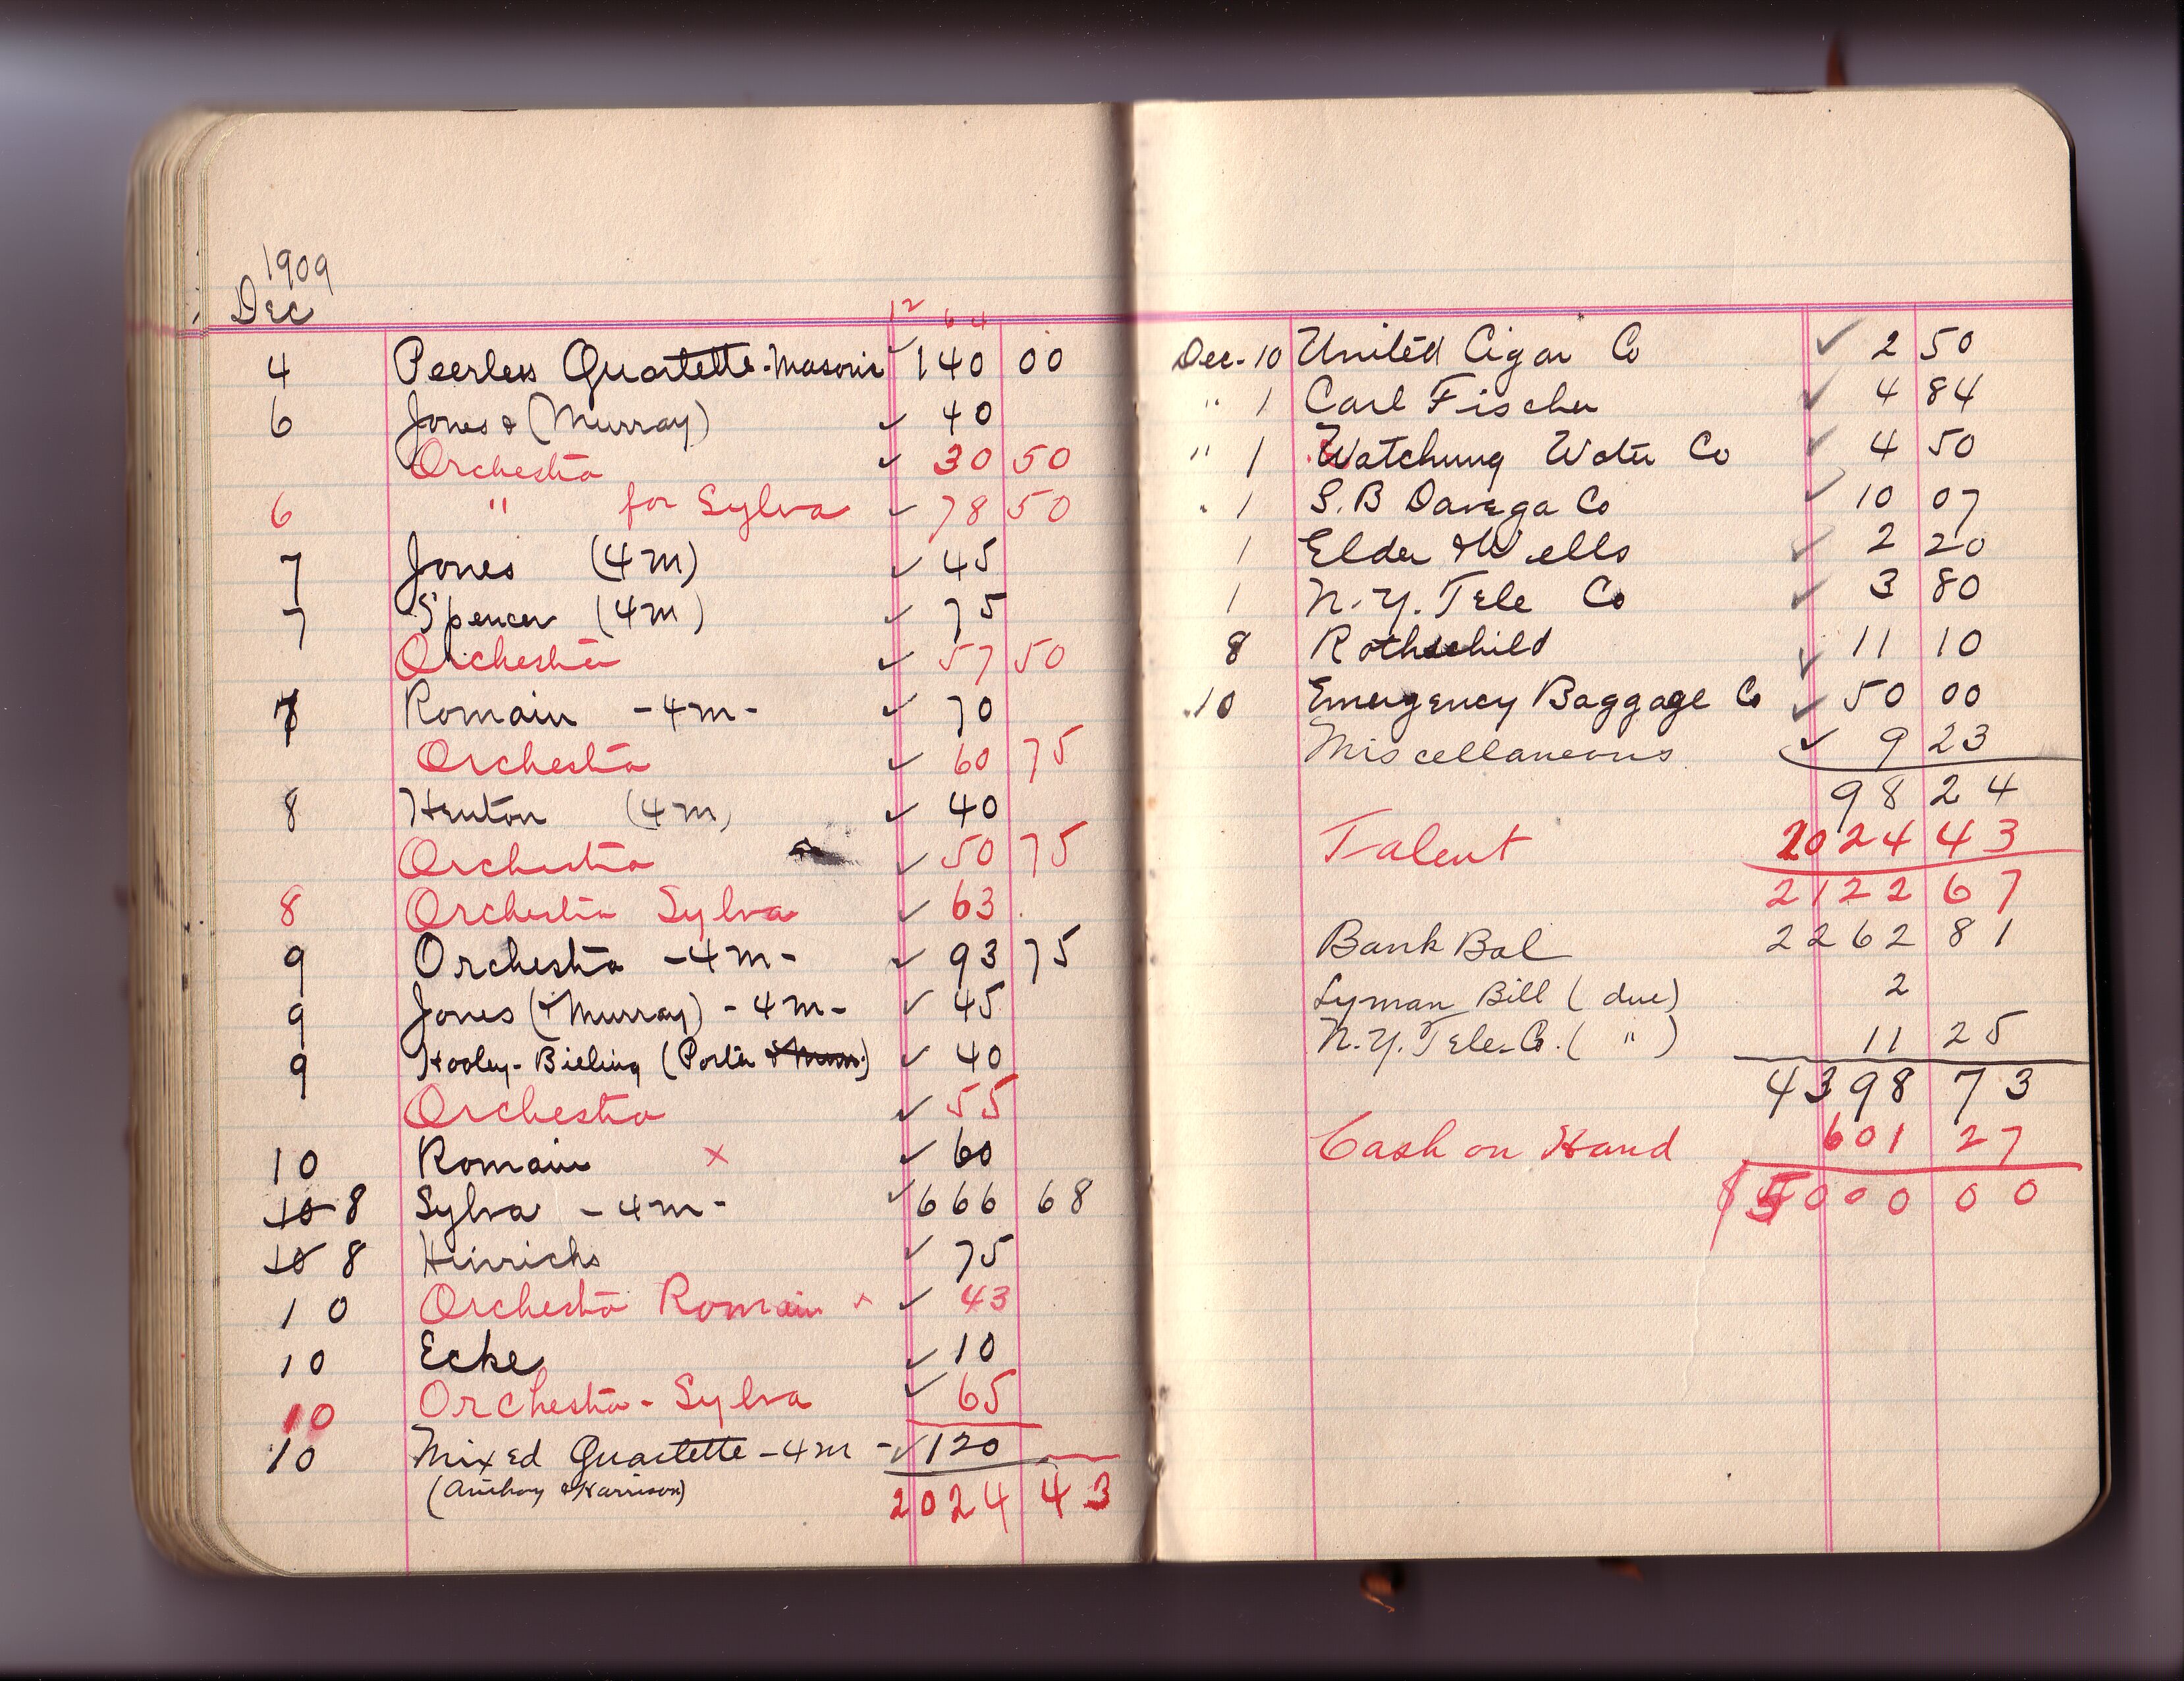 1909
Dec
12 64
4 Peerless Quartette-Masonic ✓ 140 00
6 Jones & (Murray) ✓ 40
Orchestra ✓ 30 50
6 " for Sylva ✓ 78 50
7 Jones (4m) ✓ 45
7 Spencer (4m) ✓ 75
Orchestra ✓ 57 50
7 Romain -4m- ✓ 70
Orchestra ✓ 60 75
8 Heuton (4m) ✓ 40
Orchestra ✓ 50 75
8 Orchestra Sylva ✓ 63
9 Orchestra -4m- ✓ 93 75
9 Jones (& Murray) -4m- ✓ 45
9 Hooley-Bieling (Porter) ✓ 40
Orchestra ✓ 55
10 Romain x ✓ 60
10 8 Sylva -4m- ✓ 666 68
10 8 Hinrichs ✓ 75
10 Orchestra Romain x ✓ 43
10 Ecke ✓ 10
10 Orchestra - Sylva ✓ 65
10 Mixed Quartette -4m- ✓ 120
(Anthony & Harrison)
2024 43
Dec-10 United Cigar Co ✓ 2 50
" 1 Carl Fischer ✓ 4 84
" 1 Watchung Water Co ✓ 4 50
" 1 S.B Davega Co ✓ 10 07
1 Elder & Wells ✓ 2 20
1 N.Y. Tele Co ✓ 3 80
8 Rothschild ✓ 11 10
10 Emergency Baggage Co ✓ 50 00
Miscellaneous ✓ 9 23
98 24
Talent 2024 43
2122 67
Bank Bal 2262 81
Lyman Bill (due) 2
N.Y. Tele-Co. ( " ) 11 25
4398 73
Cash on Hand 601 27
5000 00